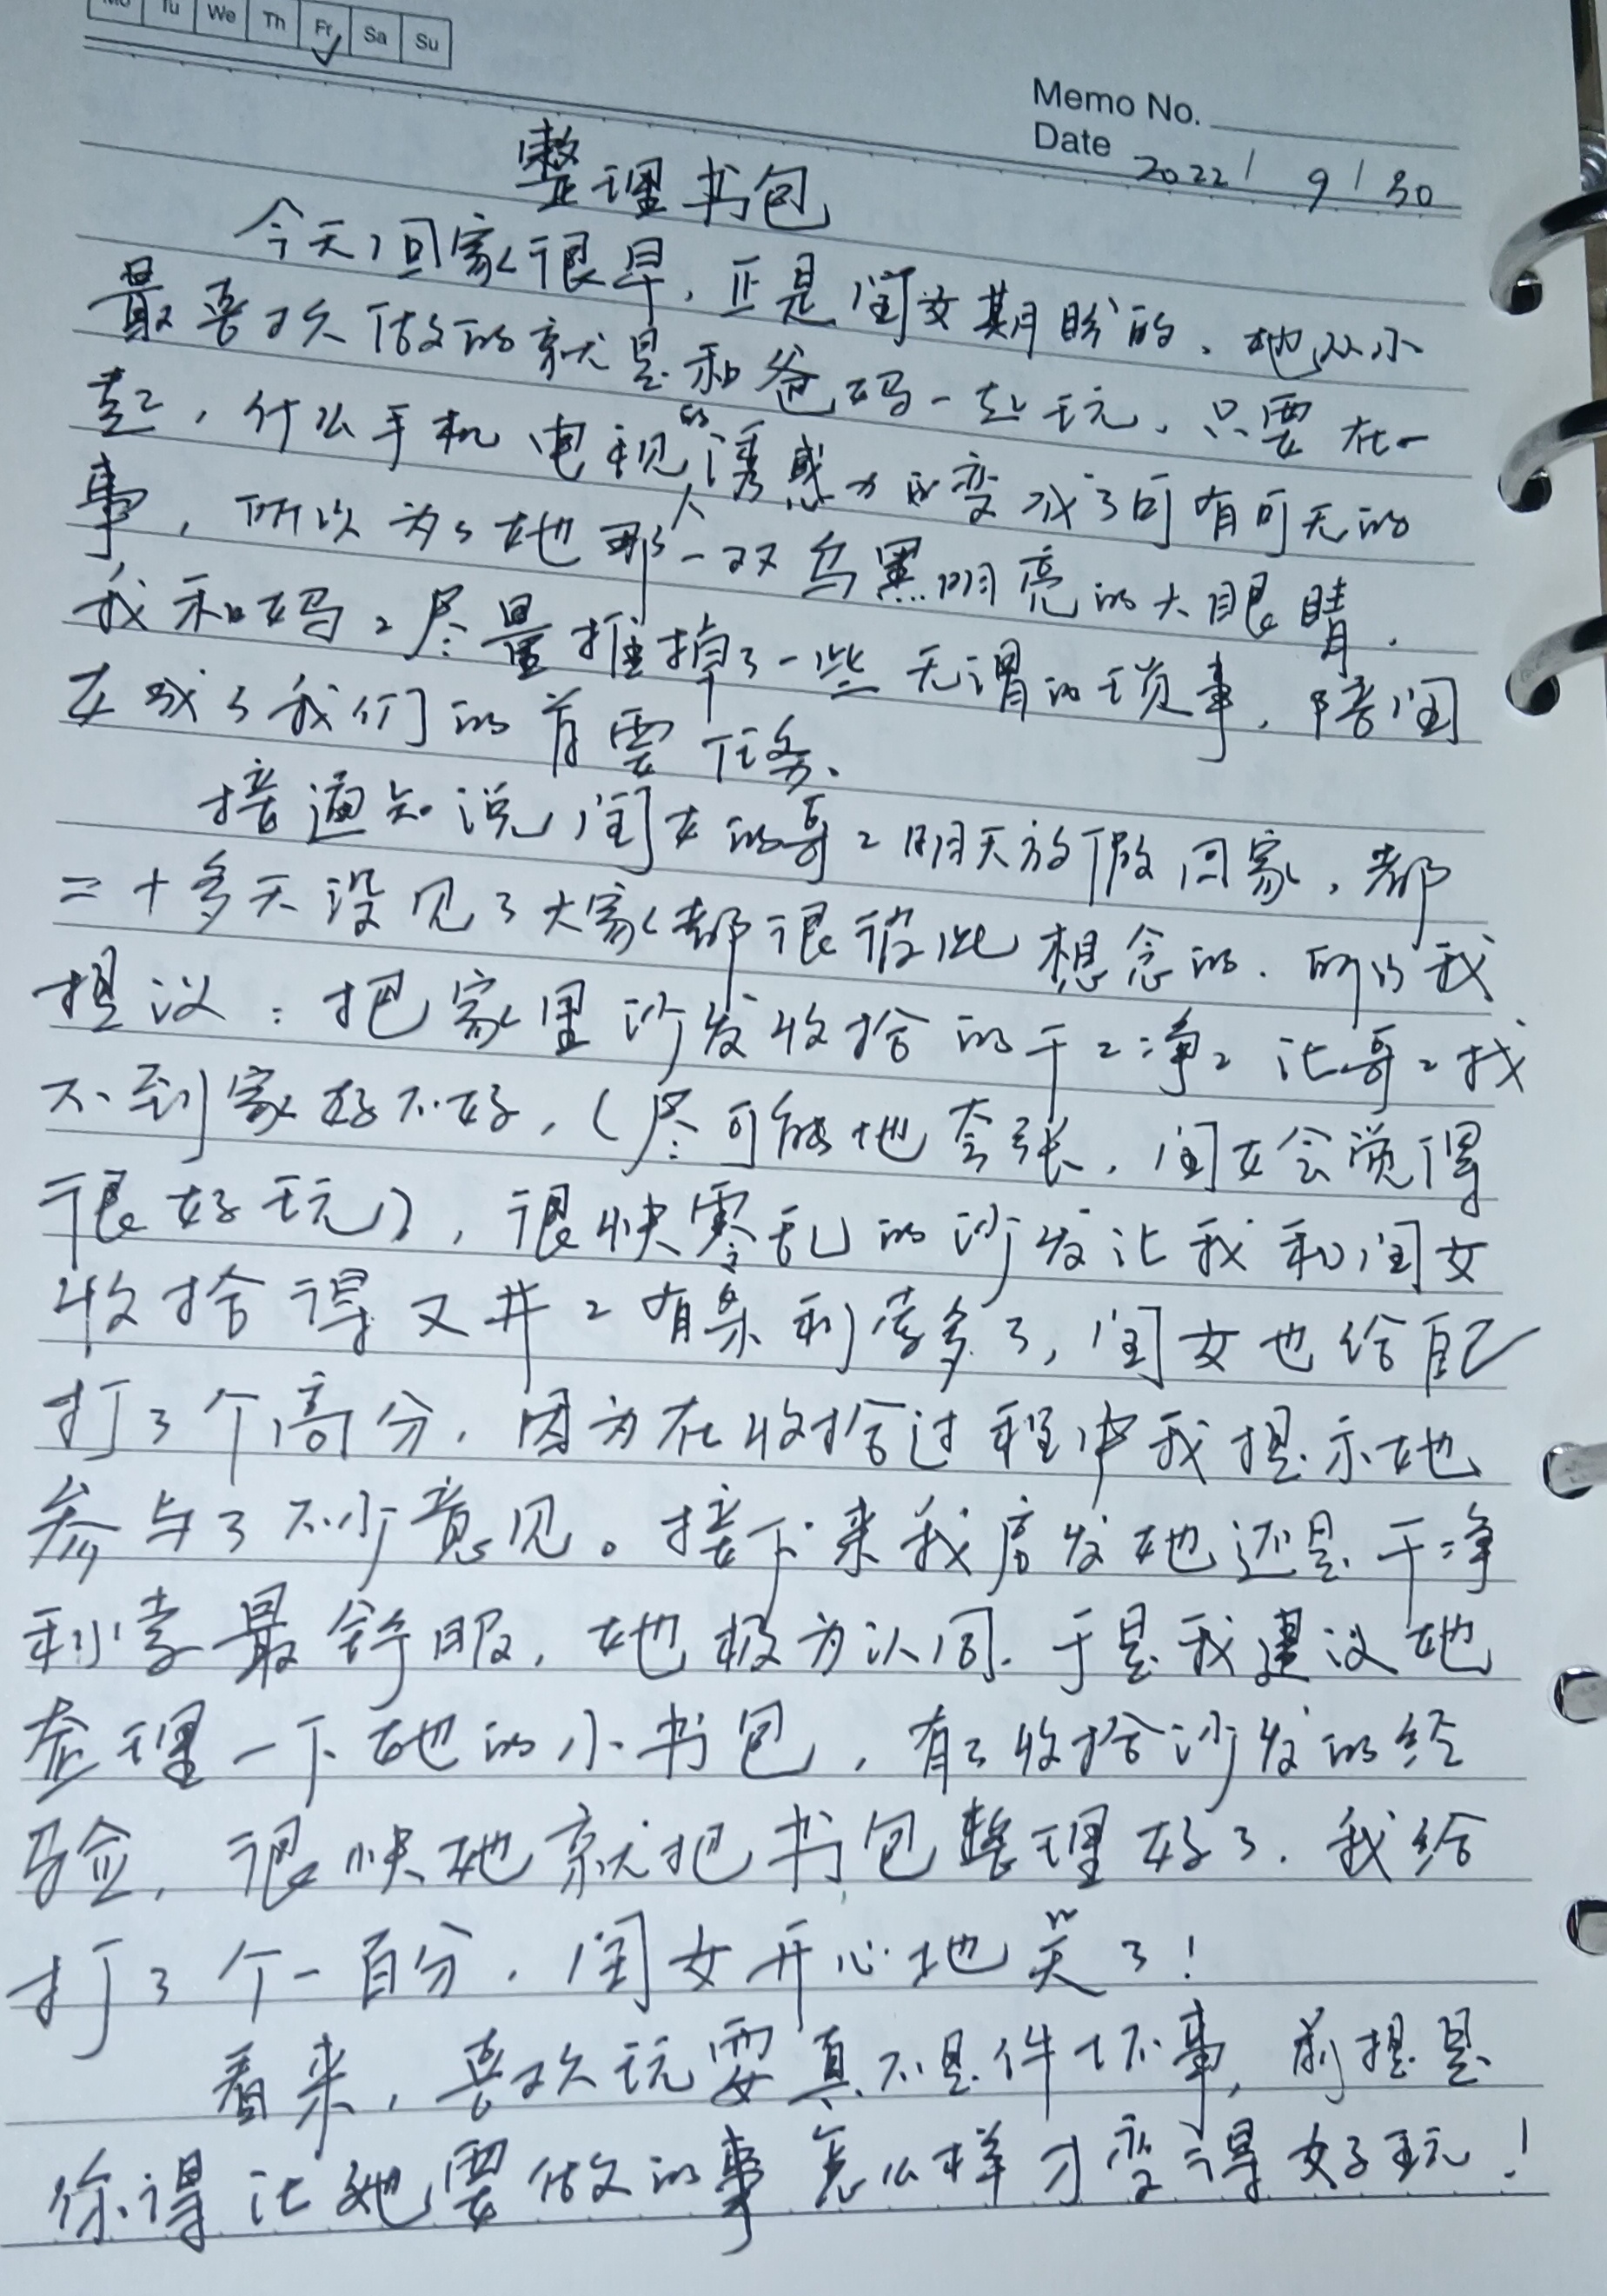 Mo Tu We Th Fr Sa Su
Memo No.
Date 2022/ 9/30
整理书包
今天回家很早，正是闺女期盼的。她从小
最喜欢做的就是和爸妈一起玩，只要在一
起，什么手机电视的诱惑力也变成了可有可无的
事，所以为了她那一双乌黑明亮的大眼睛，
我和妈妈尽量推掉了一些无谓的琐事，陪闺
女成了我们的首要任务。
接通知说闺女的哥哥明天放假回家，都
二十多天没见了大家都很彼此想念的。所以我
提议：把家里沙发收拾的干干净净让哥哥找
不到家好不好，（尽可能地夸张，闺女会觉得
很好玩），很快零乱的沙发让我和闺女
收拾得又井井有条利索多了，闺女也给自己
打了个高分，因为在收拾过程中我提示她
参与了不少意见。接下来我启发她还是干净
利索最舒服，她极为认同。于是我建议她
整理一下她的小书包，有了收拾沙发的经
验，很快她就把书包整理好了。我给
打了个一百分，闺女开心地笑了！
看来，喜欢玩耍真不是件坏事，前提是
你得让她要做的事怎么样才变得好玩！